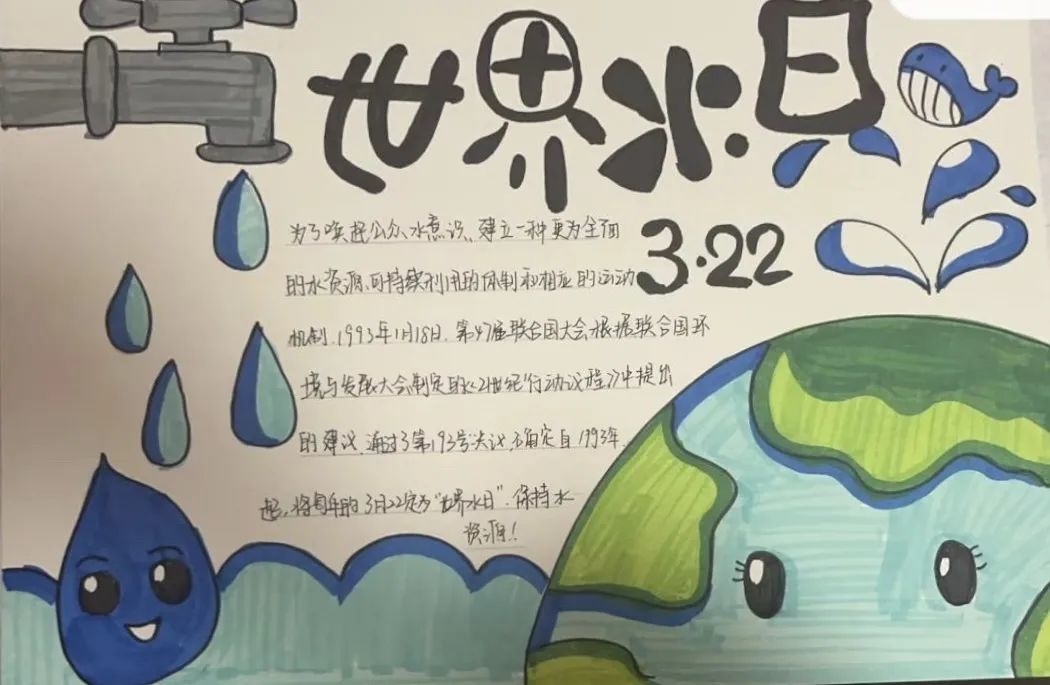 世界水日
3.22
为了唤起公众水意识、建立一种更为全面
的水资源可持续利用的体制和相应的运动
机制.1993年1月18日.第47届联合国大会根据联合国环
境与发展大会制定的《21世纪行动议程》中提出
的建议.通过了第193号决议.确定自1993年.
起,将每年的3月22定为"世界水日".保持水
资源!